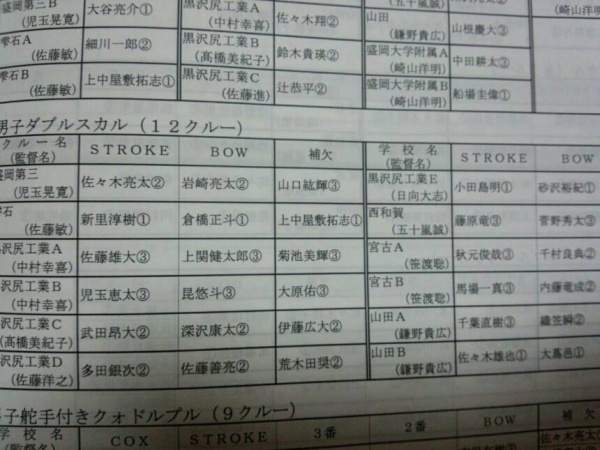 盛岡第三B
(児玉晃寛) 大谷亮介① 黒沢尻工業A
(中村幸喜) 佐々木翔② 山田
(鎌野貴広) 山根慶大③
雫石A
(佐藤敏) 細川一郎② 黒沢尻工業B
(高橋美紀子) 鈴木貴瑛② 盛岡大学附属A
(崎山洋明) 中田耕太③
雫石B
(佐藤敏) 上中屋敷拓志① 黒沢尻工業C
(佐藤進) 辻恭平② 盛岡大学附属B
(崎山洋明) 船場圭偉①
(五十嵐誠)
(崎山洋明)
男子ダブルスカル(12クルー)
クルー名
(監督名) STROKE BOW 補欠 学校名
(監督名) STROKE BOW
盛岡第三
(児玉晃寛) 佐々木亮太② 岩崎亮太② 山口紘輝③ 黒沢尻工業E
(日向大志) 小田島明① 砂沢裕紀①
雫石
(佐藤敏) 新里淳樹① 倉橋正斗① 上中屋敷拓志① 西和賀
(五十嵐誠) 藤原竜③ 菅野秀太③
黒沢尻工業A
(中村幸喜) 佐藤雄大③ 上関健太郎③ 菊池美輝③ 宮古A
(笹渡聡) 秋元俊哉③ 千村良典②
黒沢尻工業B
(中村幸喜) 児玉恵太③ 昆悠斗③ 大原佑③ 宮古B
(笹渡聡) 馬場一真③ 内藤竜成②
黒沢尻工業C
(高橋美紀子) 武田昂大② 深沢康太② 伊藤広大② 山田A
(鎌野貴広) 千葉直樹③ 織笠瞬②
黒沢尻工業D
(佐藤洋之) 多田銀次② 佐藤善亮② 荒木田奨② 山田B
(鎌野貴広) 佐々木雄也① 大蔦邑①
男子舵手付きクォドルプル(9クルー)
学校名
(監督名) COX STROKE 3番 2番 BOW 補欠